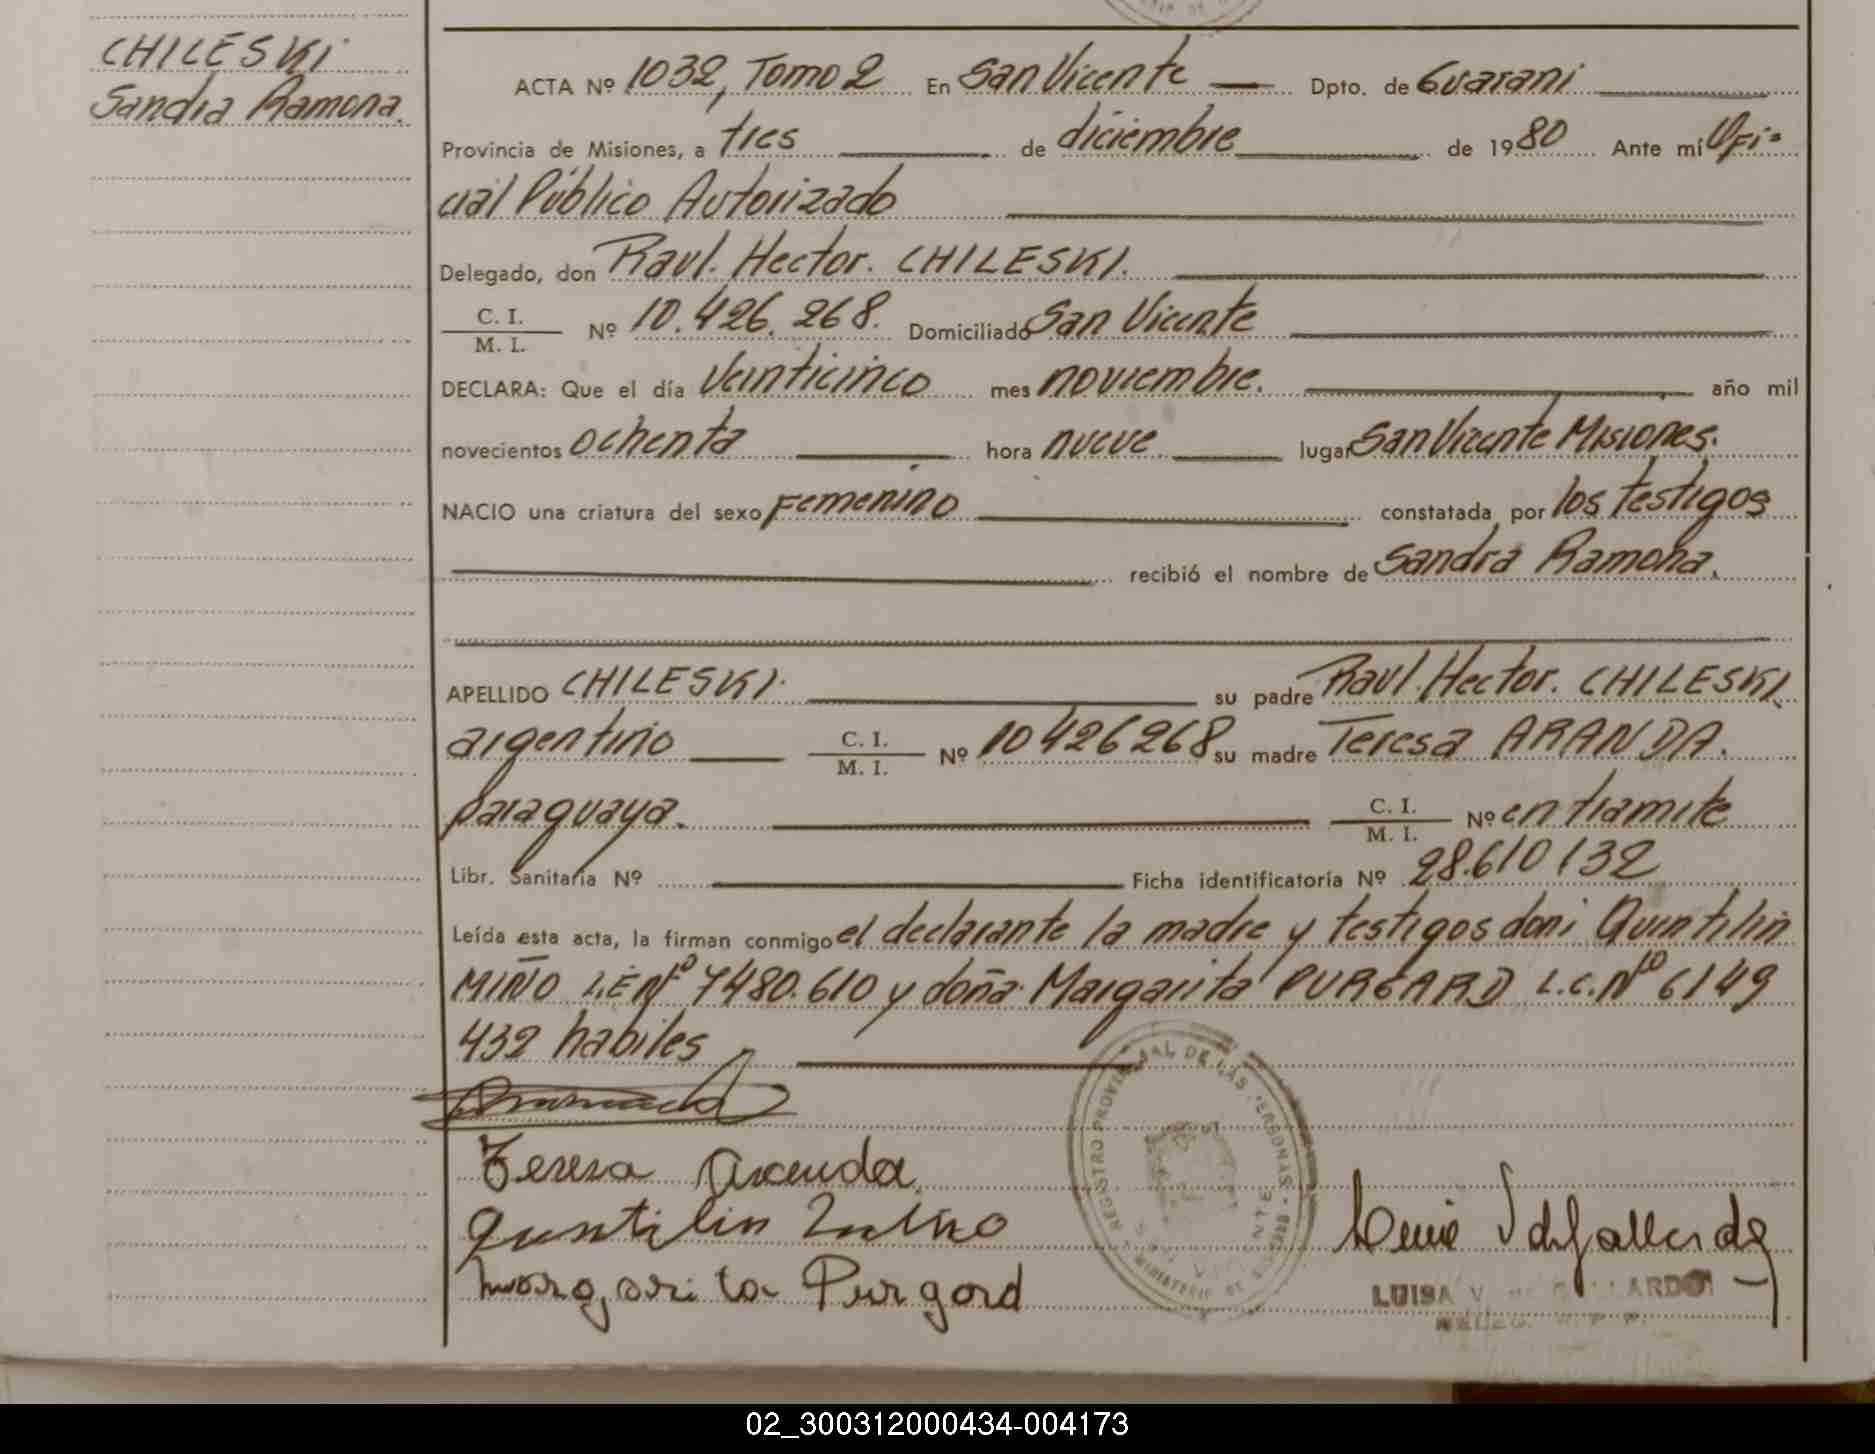 CHILESKI
Sandra Ramona.
ACTA Nº 1032, Tomo 2 En San Vicente Dpto. de Guarani
Provincia de Misiones, a tres de diciembre de 1980 Ante mí Ofi=
cial Público Autorizado
Delegado, don Raul. Hector. CHILESKI.
C. I.
M. I. Nº 10.426.268. Domiciliado San Vicente
DECLARA: Que el día Veinticinco mes noviembre. año mil
novecientos ochenta hora nueve lugar San Vicente Misiones.
NACIO una criatura del sexo Femenino constatada por los testigos
recibió el nombre de Sandra Ramona.
APELLIDO CHILESKI. su padre Raul. Hector. CHILESKI,
argentino C. I.
M. I. Nº 10426268 su madre Teresa ARANDA.
paraguaya. C. I.
M. I. Nº en tramite
Libr. Sanitaria Nº Ficha identificatoria Nº 28.610132
Leída esta acta, la firman conmigo el declarante la madre y testigos don: Quintilin
MIÑO L.E Nº 7480.610 y doña: Margarita PURGARD L.C. Nº 6149
432 habiles
Teresa Aranda
quintilin Miño
Margarita Purgard
REGISTRO PROVINCIAL DE LAS PERSONAS
MINISTERIO DE
LUISA V. GALLARDO
02_300312000434-004173